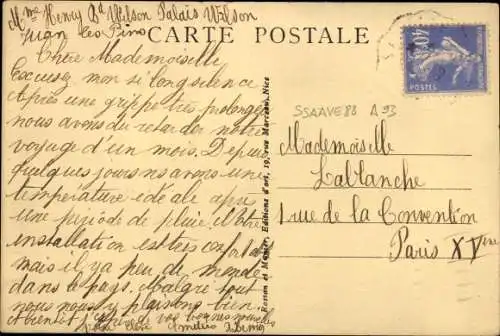 Mme Henry Bd Wilson Palais Wilson
Juan les Pins
CARTE POSTALE
Chère Mademoiselle
Excusez mon si long silence
Après une grippe très prolongée
nous avons du retarder notre
voyage d'un mois. Depuis
quelques jours ns avons une
température idéale après
une période de pluie. Notre
installation est très confortable
mais il y a peu de monde
dans le pays. Malgré tout
nous nous y plaisons bien.
A bientôt de vos bonnes nouvelles
40c
POSTES
SSAAVE88 A93
Mademoiselle
Lablanche
1 rue de la Convention
Paris XVme
Editions d'art, 19, rue Marceau, Nice